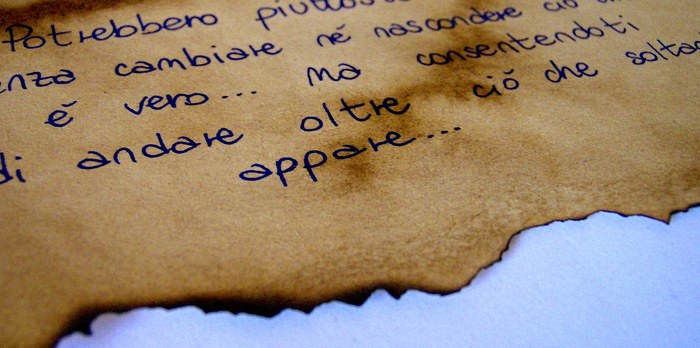 Potrebbero piuttosto
cambiare né nascondere ciò
é vero... ma consentendoti
di andare oltre ciò che
appare...